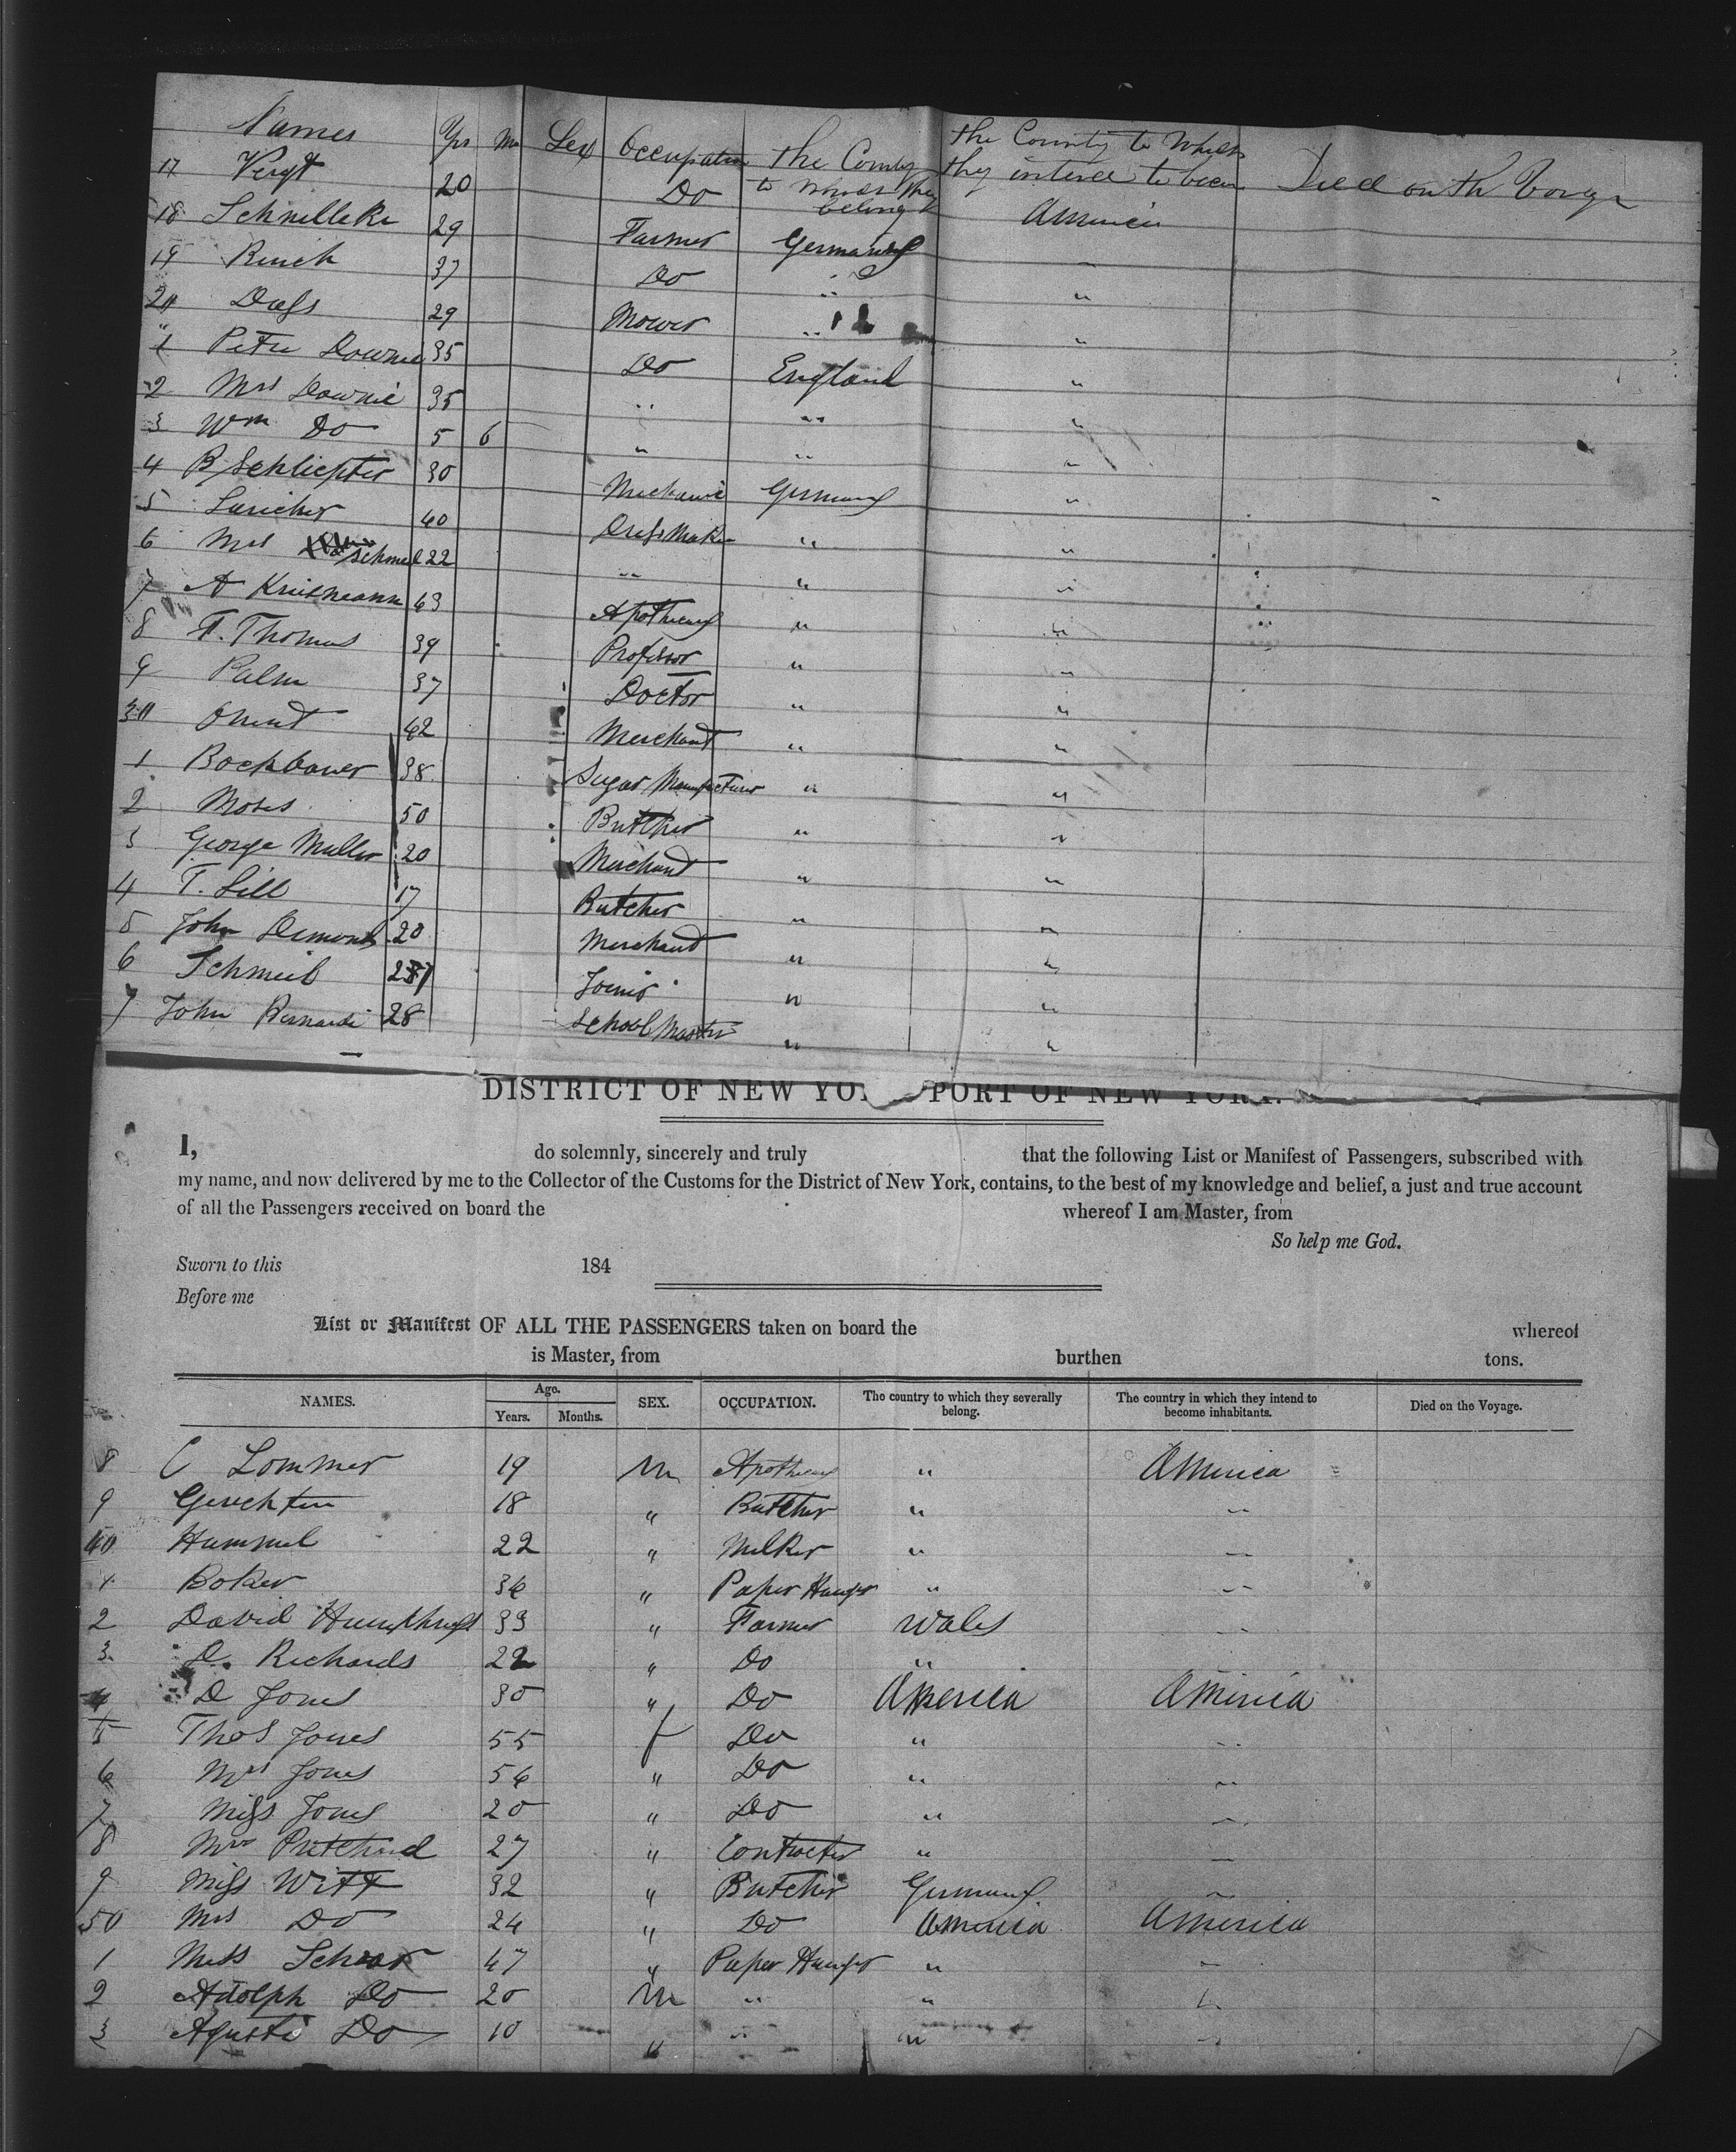 Names Yrs Mo Sex Occupation the County to which they belong the County to Which they intend to becom Died on th Voyge
17 Vergt 20 Do America
18 Schnelleke 29 Farmer Germany "
19 Rinck 37 Do " "
20 Dass 29 Mower " "
1 Peter Downie 35 Do England "
2 Mrs Downie 35 " " "
3 Wm Do 5 6 " " "
4 B Schliepter 30 Mechanic Germany "
5 Suricher 40 Dress Maker " "
6 Mrs Schmel 22 " " "
7 A Kriesmann 63 Apothecary " "
8 F. Thomas 39 Professor " "
9 Palm 37 Doctor " "
30 Ohent 42 Merchant " "
1 Bockbauer 38 Sugar Manufacturer " "
2 Moses 50 Butcher " "
3 George Muller 20 Merchant " "
4 T. Sill 17 Butcher " "
5 John Demont 20 Merchand " "
6 Schmeil Joiner " "
7 John Bernardi 28 School Master " "
DISTRICT OF NEW YO PORT OF NEW YORK.
I, do solemnly, sincerely and truly that the following List or Manifest of Passengers, subscribed with
my name, and now delivered by me to the Collector of the Customs for the District of New York, contains, to the best of my knowledge and belief, a just and true account
of all the Passengers received on board the whereof I am Master, from
So help me God.
Sworn to this 184
Before me
List or Manifest OF ALL THE PASSENGERS taken on board the whereof
is Master, from burthen tons.
NAMES. Age. Years. Months. SEX. OCCUPATION. The country to which they severally belong. The country in which they intend to become inhabitants. Died on the Voyage.
8 C Lommer 19 M Apothecary " America
9 Gerichten 18 " Butcher " "
40 Hummel 22 " Milker " "
1 Boker 36 " Paper Hanger " "
2 David Humphreys 33 " Farmer Wales "
3 D. Richards 22 " Do " "
4 D Jones 30 " Do America America
5 Thos Jones 55 f Do " "
6 Mrs Jones 56 " Do " "
7 Miss Jones 20 " Do " "
8 Mrs Pritchard 27 " Contracter " "
9 Miss Witt 32 " Butcher Germany "
50 Mrs Do 24 " Do America America
1 Miss Schaar 47 " Paper Hanger " "
2 Adolph Do 20 M " " "
3 Agusti Do 10 " " " "